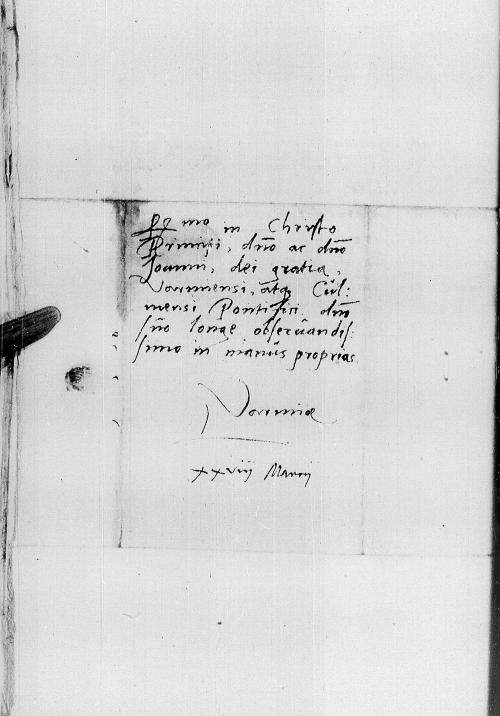 R mo in Christo
Principi, dño ac dño
Joanni, dei gratia,
Varmiensi, atq Cul:
mensi Pontifici dño
sũo longe observandis:
simo in manus proprias
Varmiæ
xxviij Marcij